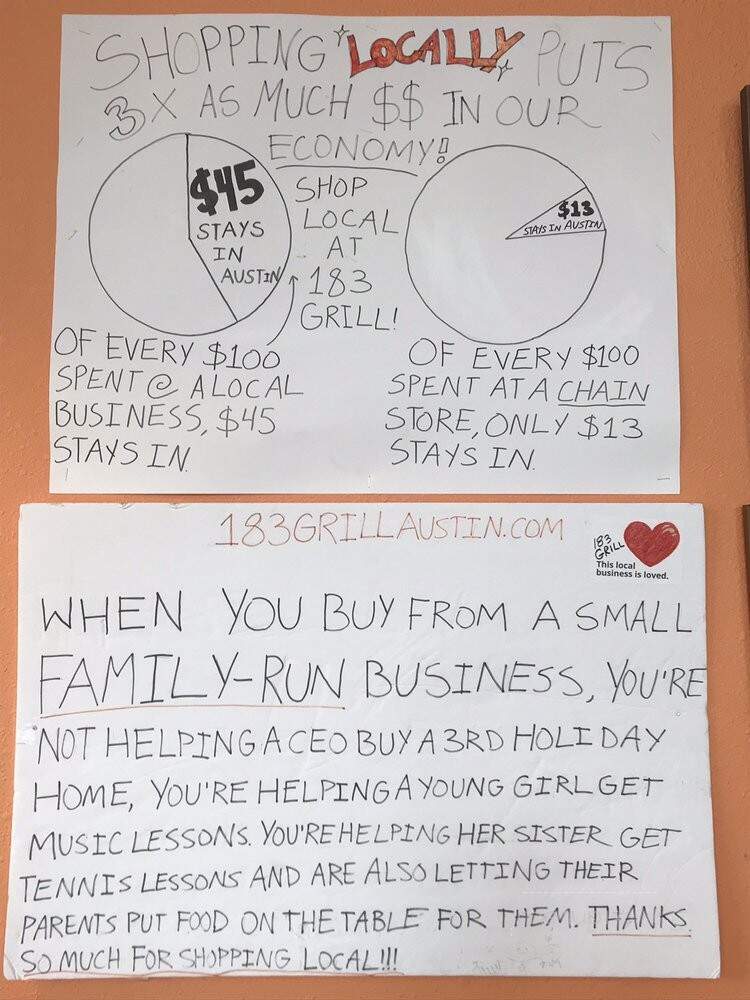 SHOPPING LOCALLY PUTS
3X AS MUCH $$ IN OUR
ECONOMY!
$45
STAYS
IN
AUSTIN
SHOP
LOCAL
AT
183
GRILL!
$13
STAYS IN AUSTIN
OF EVERY $100
SPENT @ A LOCAL
BUSINESS, $45
STAYS IN.
OF EVERY $100
SPENT AT A CHAIN
STORE, ONLY $13
STAYS IN.
183GRILLAUSTIN.COM
183
GRILL
This local
business is loved.
WHEN YOU BUY FROM A SMALL
FAMILY-RUN BUSINESS, YOU'RE
NOT HELPING A CEO BUY A 3RD HOLIDAY
HOME, YOU'RE HELPING A YOUNG GIRL GET
MUSIC LESSONS. YOU'RE HELPING HER SISTER GET
TENNIS LESSONS AND ARE ALSO LETTING THEIR
PARENTS PUT FOOD ON THE TABLE FOR THEM. THANKS
SO MUCH FOR SHOPPING LOCAL!!!